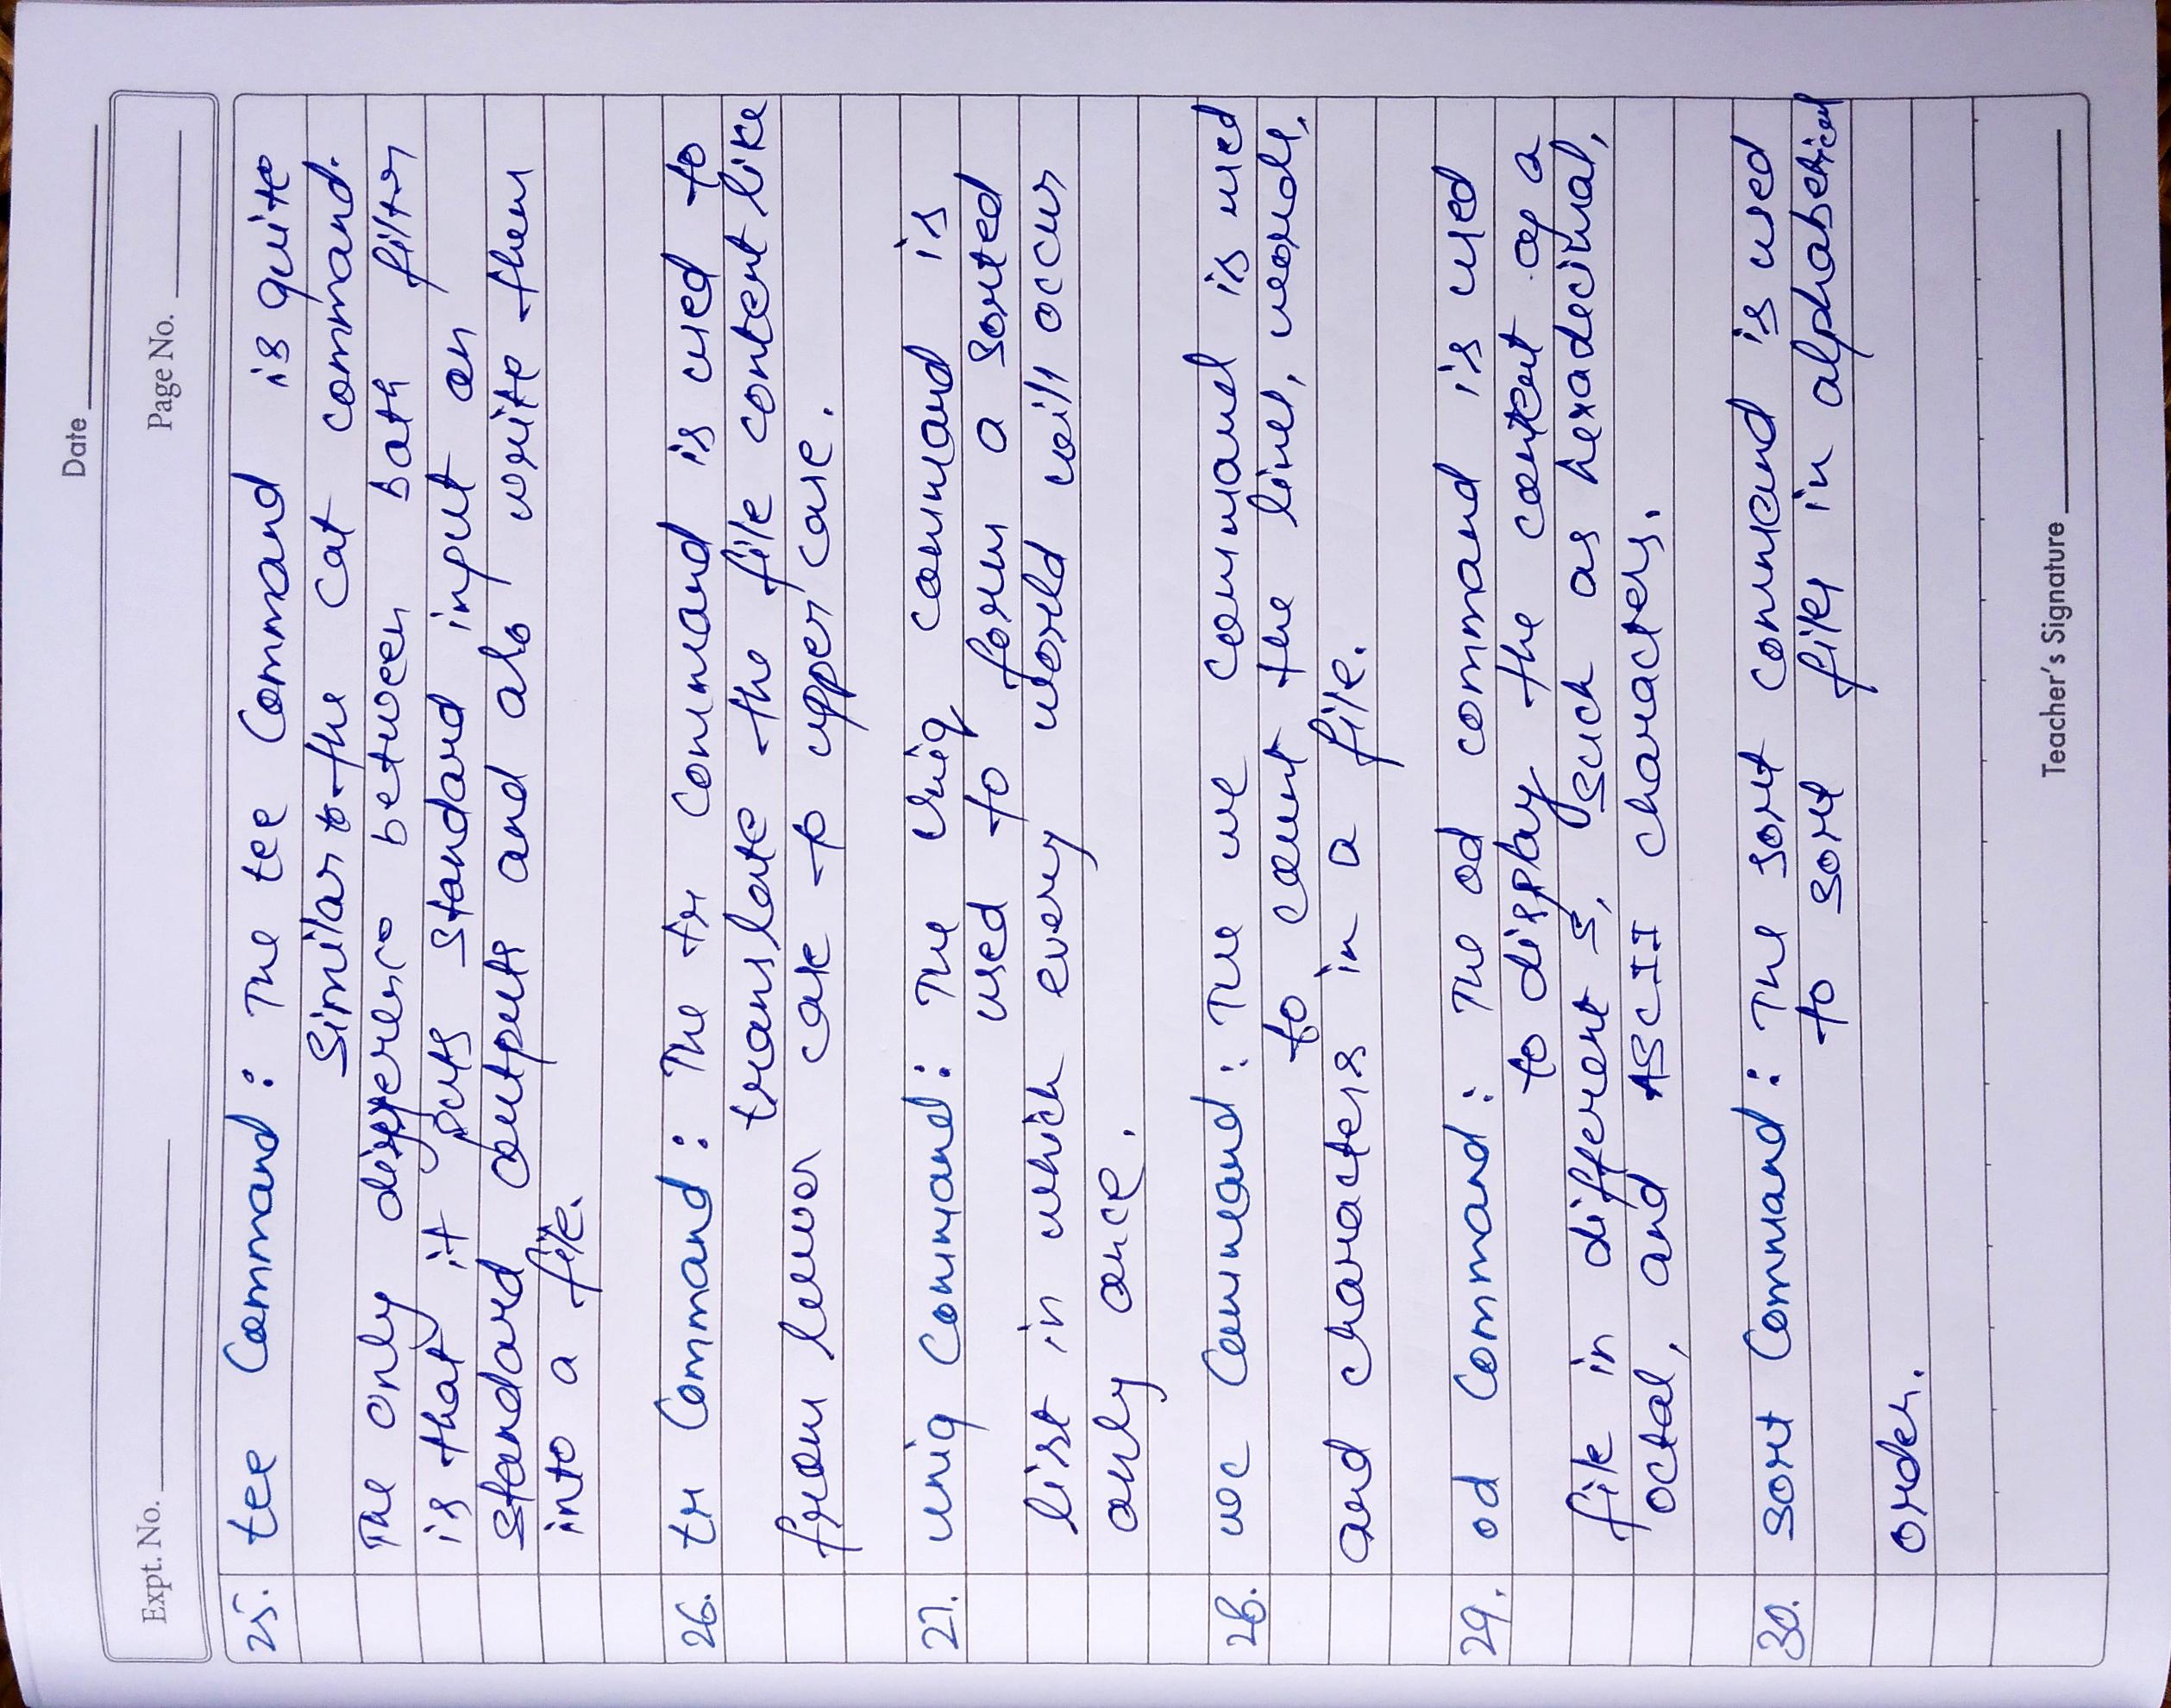 Date
Expt. No.
Page No.
25. tee Command : The tee Command is quite
Similar to the Cat command.
The only difference between both filter
is that it puts standard input on
standard outputs and also write them
into a file.
26. tr Command : The tr Command is used to
translate the file content like
from lower case to upper case.
27. uniq Command : The Uniq command is
used to form a sorted
list in which every world will occur
only once.
28. wc Command : The wc Command is used
to count the lines, words,
and characters in a file.
29. od Command : The od command is used
to display the content of a
file in different s, such as hexadecimal,
octal, and ASCII characters.
30. sort Command : The sort command is used
to sort files in alphabetical
order.
Teacher's Signature